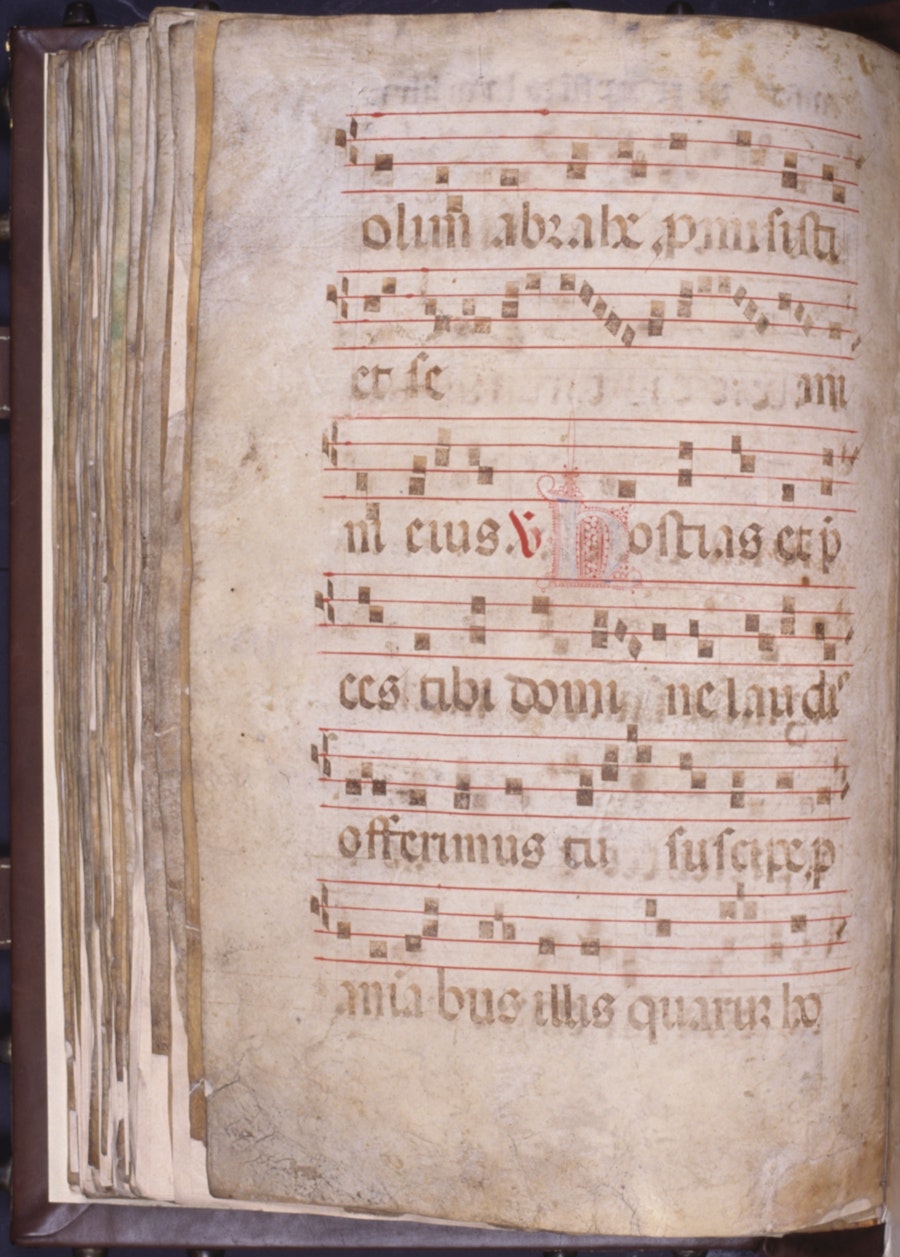 olim abrahe promisisti
et se mi
ni eius. V. Hostias et p
ces tibi domi ne laudis
offerimus tu suscipe p
anīa bus illis quaruz ho